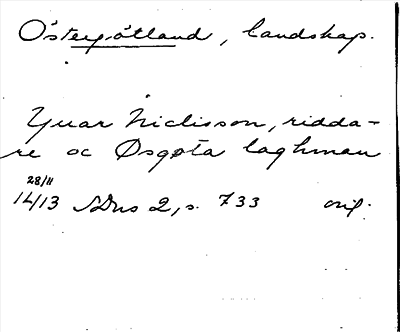 Östergötland, landskap.
Yuar Niclisson, ridda-
re oc Øsgøta laghman
28/11
1413 SDns 2, s. 733 orig.